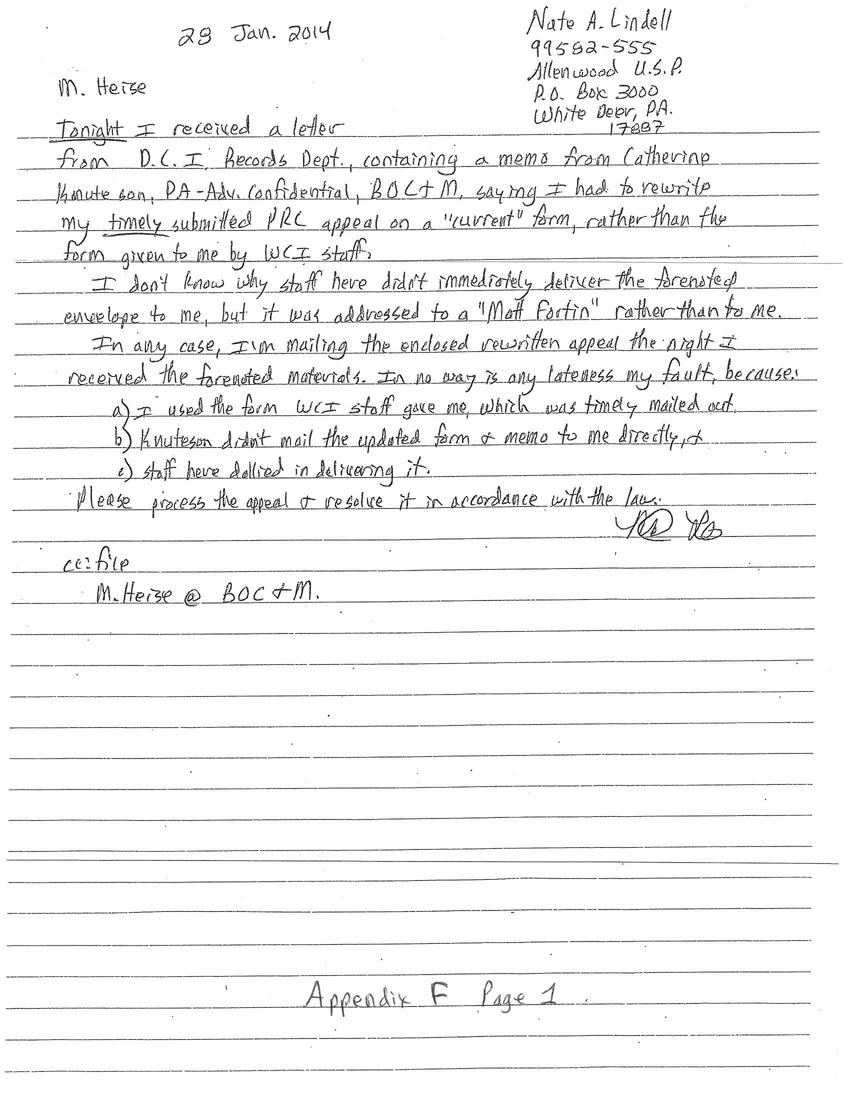 28 Jan. 2014
Nate A. Lindell
99582-555
Allenwood U.S.P.
P.O. Box 3000
White Deer, PA.
17887
M. Heise
Tonight I received a letter
from D.C.I. Records Dept., containing a memo from Catherine
Knuteson, PA-Adv. Confidential, BOC+M, saying I had to rewrite
my timely submitted PRC appeal on a "current" form, rather than the
form given to me by WCI staff.
I don't know why staff here didn't immediately deliver the forenoted
envelope to me, but it was addressed to a "Matt Fortin" rather than to me.
In any case, I'm mailing the enclosed rewritten appeal the night I
received the forenoted materials. In no way is any lateness my fault, because:
a) I used the form WCI staff gave me, which was timely mailed out.
b) Knuteson didn't mail the updated form + memo to me directly, +
c) staff here dallied in delivering it.
Please process the appeal + resolve it in accordance with the law.
cc: file
M. Heise @ BOC+M.
Appendix F Page 1